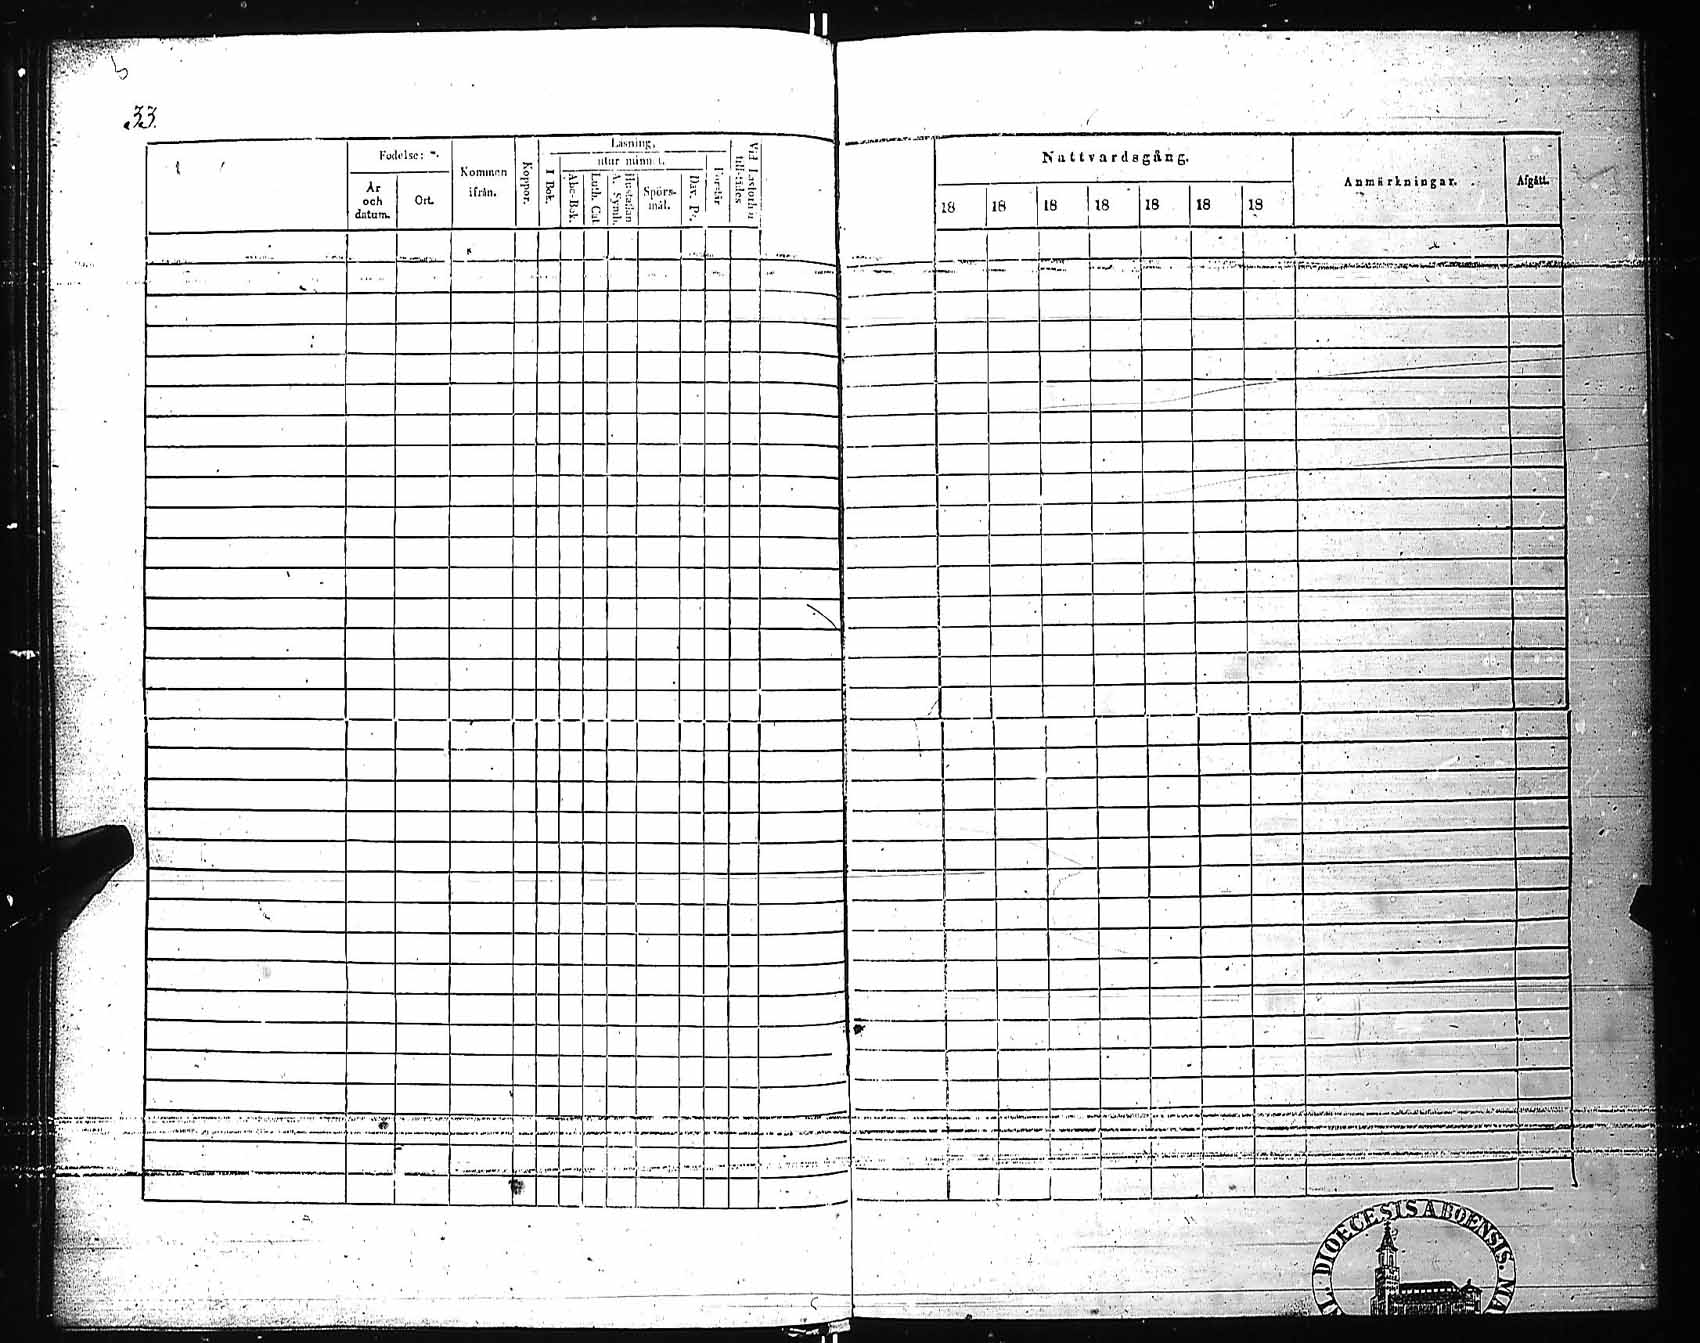 33.
Födelse:
År och datum.
Ort.
Kommen ifrån.
Koppor.
Läsning,
I Bok.
utur minnet.
Abc-Bok.
Luth. Cat.
A. Symb.
Hustaflan
Spörs-mål.
Dav. Ps.
Förstår
Nattvardsgång.
18 18 18 18 18 18 18
Anmärkningar.
Afgått.
DIOECESIS ABOENSIS. MA